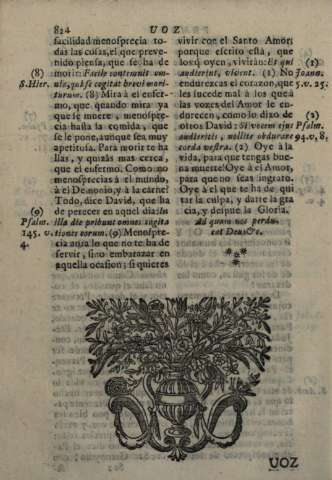 824 UOZ
facilidad menosprecia to-
das las cosas, el que preve-
nido piensa, que se ha de
(8) morir: Facile contemnit om-
S. Hier. nia, qui se cogitat brevi mori-
turum. (8) Mira à el enfer-
mo, que quando mira ya
que se muere, menospre-
cia hasta la comida, que
se le pone, aunque sea muy
apetitosa. Para morir te ha
llas, y quizàs mas cerca,
que el enfermo. Como no
menosprecias à el mundo,
à el Demonio, y à la carne?
Todo, dice David, que ha
(9) de perecer en aquel dia: In
Psalm. illa die peribunt omnes cogita
145. v. tiones eorum. (9) Menospre-
4. cia aora lo que no te ha de
servir, sino embarazar en
aquella ocasion; si quieres
vivir con el Santo Amor;
porque escrito està, que
los q̃ oyen, vivirán: Et qui (1)
audierint, vivent. (1) No Joann.
endurezcas el corazon, que 5. v. 25.
les sucede mal à los que à
las vozes del Amor se en-
dorecen, como lo dixo de (2)
otros David: Si vocem ejus Psalm.
audieritis, nolite obdurare 94. v. 8.
corda vestra. (2) Oye à la
vida, para que tengas bue-
na muerte! Oye à el Amor,
para que no seas ingrato.
Oye à el que te ha de qui
tar la culpa, y darte la gra
cia, y despues la Gloria.
Ad quam nos perdu-
cat Deus &c.
UOZ